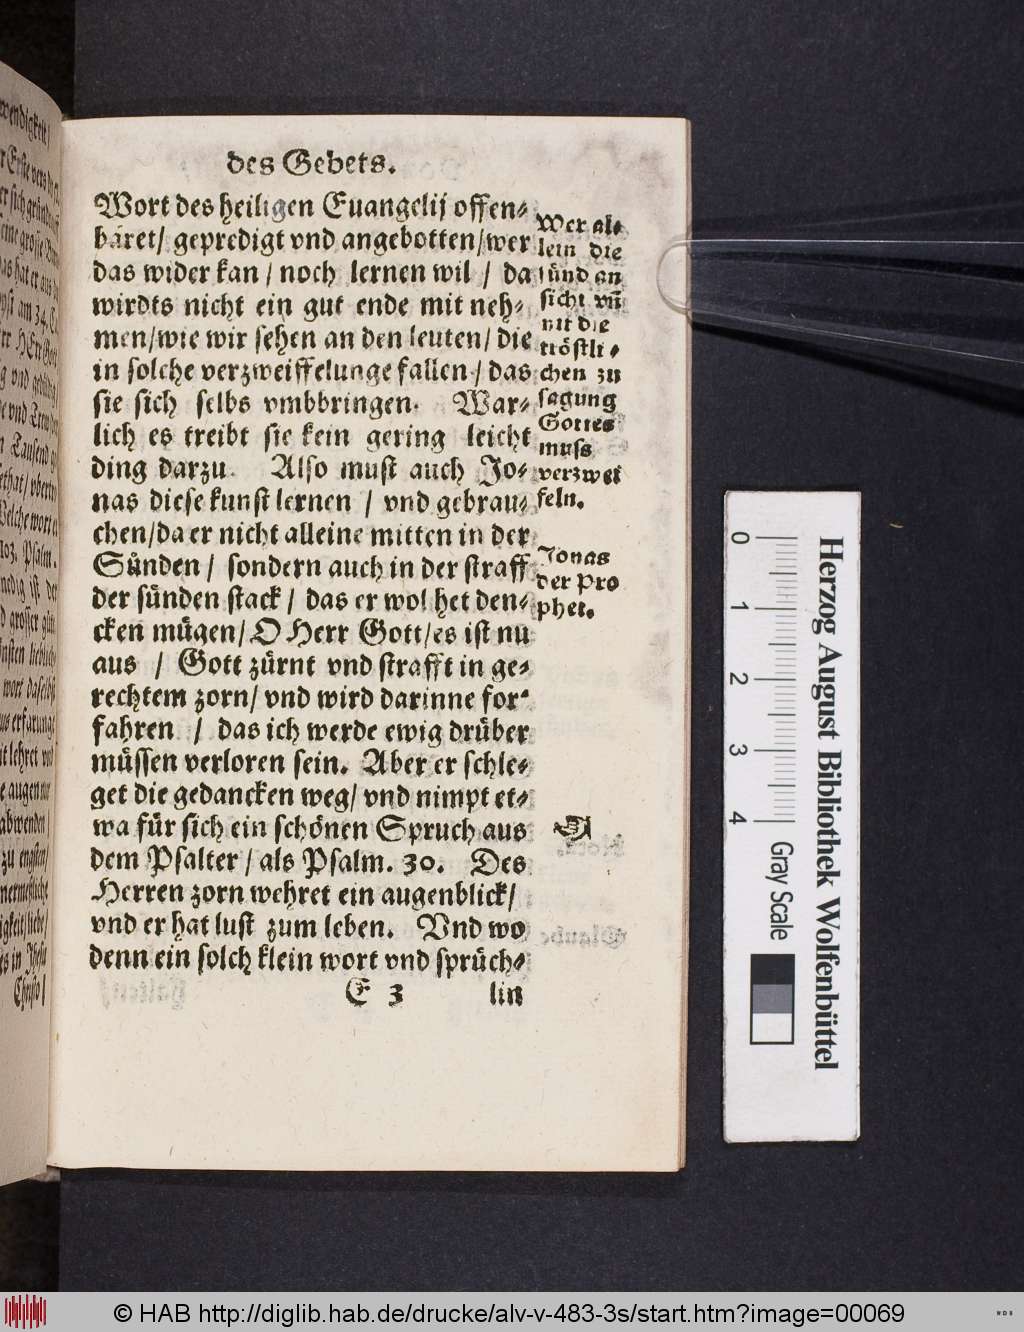 des Gebets.
Wort des heiligen Euangelij offen⸗
baret/ gepredigt vnd angebotten/wer
das wider kan / noch lernen wil / da
wirdts nicht ein gut ende mit neh⸗
men/wie wir sehen an den leuten/ die
in solche verzweiffelunge fallen / das
sie sich selbs vmbbringen. War⸗
lich es treibt sie kein gering leicht
ding darzu. Also must auch Jo⸗
nas diese kunst lernen / vnd gebrau⸗
chen/da er nicht alleine mitten in der
Sünden / sondern auch in der straff
der sünden stack / das er wol het den⸗
cken mügen/ O Herr Gott/es ist nu
aus / Gott zürnt vnd strafft in ge⸗
rechtem zorn/ vnd wird darinne for⸗
fahren / das ich werde ewig drüber
müssen verloren sein. Aber er schle⸗
get die gedancken weg/ vnd nimpt et⸗
wa für sich ein schönen Spruch aus
dem Psalter / als Psalm. 30. Des
Herren zorn wehret ein augenblick/
vnd er hat lust zum leben. Vnd wo
denn ein solch klein wort vnd sprüch⸗
E 3 lin
Wer al⸗
lein die
sünd an
sicht vñ
nit die
tröstli⸗
chen zu
sagung
Gottes
muss
verzwei
feln.
Jonas
der Pro
phet.
wendigkeit/
103. Psalm.
Christo/
0 1 2 3 4
Gray Scale
Herzog August Bibliothek Wolfenbüttel
© HAB http://diglib.hab.de/drucke/alv-v-483-3s/start.htm?image=00069